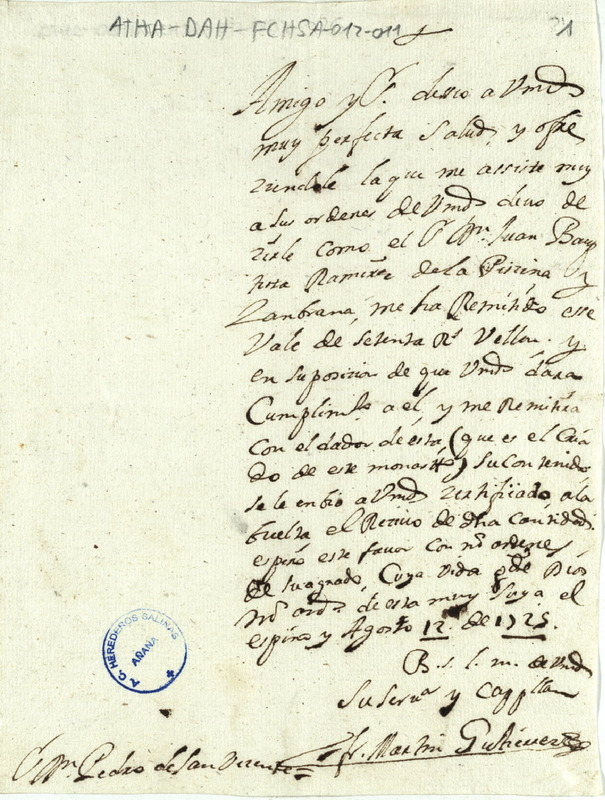 ATHA-DAH-FCHSA-012-011
1
Amigo y Sr. deseo a Vmd
muy perfecta Salud, y ofre
ziendole la que me assiste muy
a sus ordenes de Vmd devo de
zirle como el Sr Dn. Juan Bap
tista Ramirez de la Piscina y
Zanbrana, me ha Remitido ese
Vale de setenta Rs Vellon. y
en suposicion de que Vmd dara
Cumplimto a el, y me Remitira
Con el dador de esta (que es el Cria
do de este monastro) su Contenido
se le enbio a Vmd Zertificado a la
buelta el Recivo de dha Cantidad
espero este favor con ms ordenes
de su agrado, Cuya vida gde Dios
ms ans de esta muy suya el
espino y Agosto 12 de 1725.
B. s. l. m. de Vmd
Su Servr y Cappllan
Fr. Martin Gutierrez
Sr Dn Pedro de San Vizente
A. C. HEREDEROS SALINAS
AÑANA